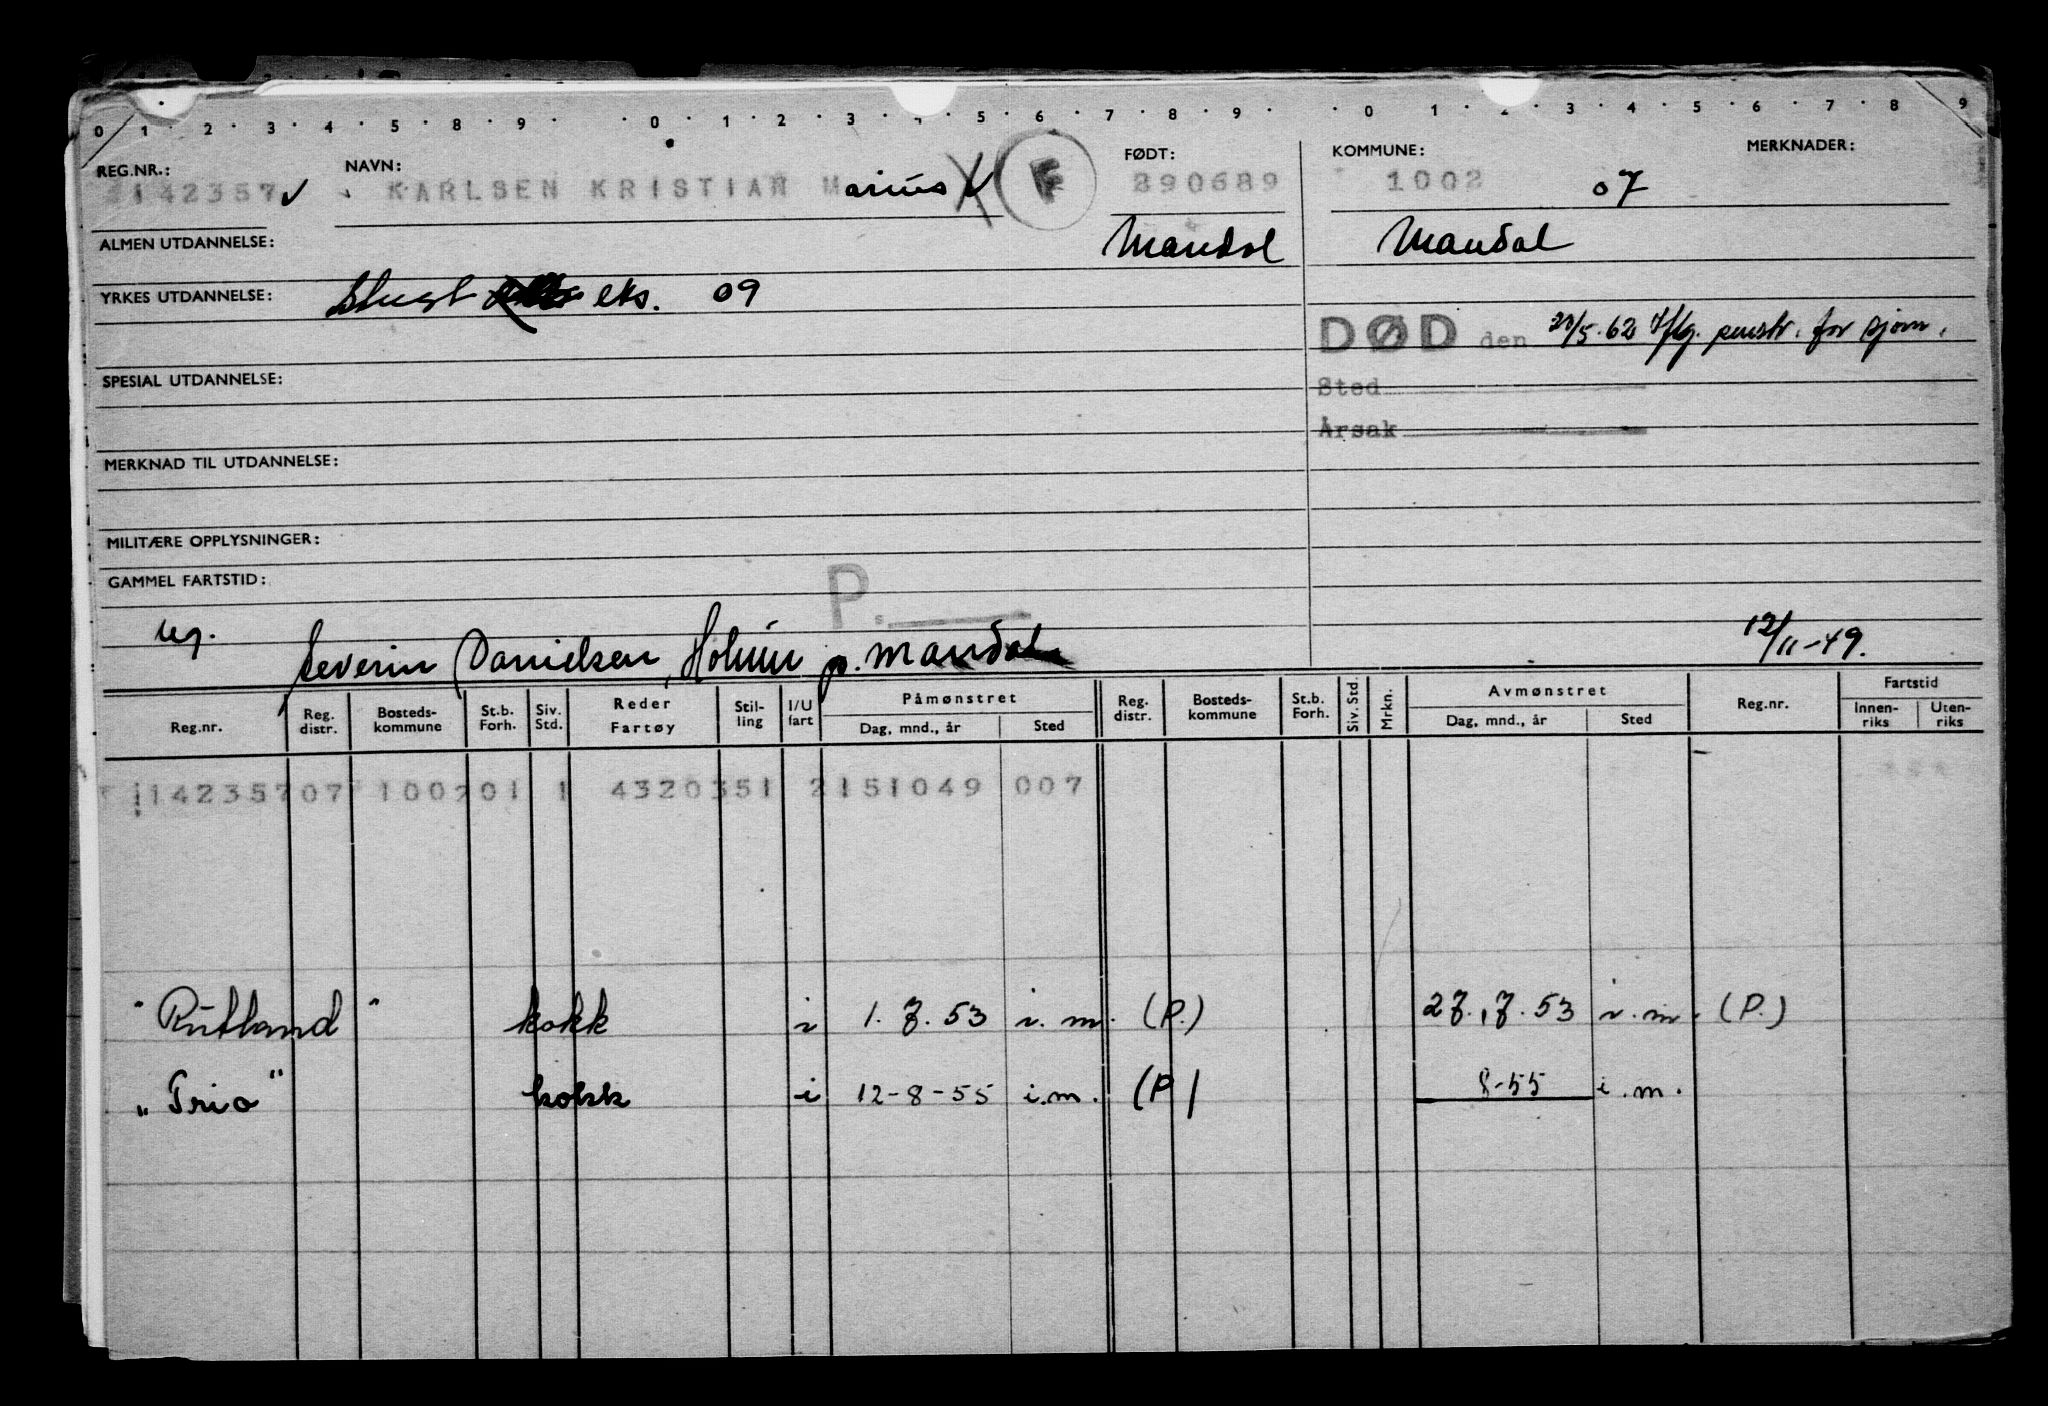 0 1 2 3 4 5 8 9 0 1 2 3 5 6 7 8 9 0 1 3 4 5 6 7 8 9
REG.NR.: NAVN: FØDT: KOMMUNE: MERKNADER:
142357 ✓ KARLSEN KRISTIAN Marius ✓ F 290689 1002 07
ALMEN UTDANNELSE: Mandal Mandal
YRKES UTDANNELSE: eks. 09
DØD den 20/5.62 iflg. penstr. for sjøm.
SPESIAL UTDANNELSE: Sted
Årsak
MERKNAD TIL UTDANNELSE:
MILITÆRE OPPLYSNINGER:
GAMMEL FARTSTID: P.
ug. Severin Danielsen, Holum p. Mandal 12/11-49.
Reg.nr. Reg. distr. Bosteds-kommune St.b. Forh. Siv. Std. Reder Fartøy Stil-ling I/U fart Påmønstret Dag, mnd., år Sted Reg. distr. Bosteds-kommune St.b. Forh. Siv. Std. Mrkn. Avmønstret Dag, mnd., år Sted Reg.nr. Fartstid Innen-riks Uten-riks
14235707 100201 1 4320351 2151049 007
"Rutland" kokk i 1.7.53 i.m. (P.) 27.7.53 i.m. (P.)
"Trio" kokk i 12-8-55 i.m. (P) 8-55 i.m.